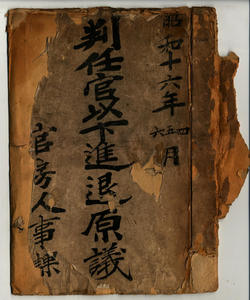 昭和十六年 四五六月
判任官以下進退原議
官房人事課